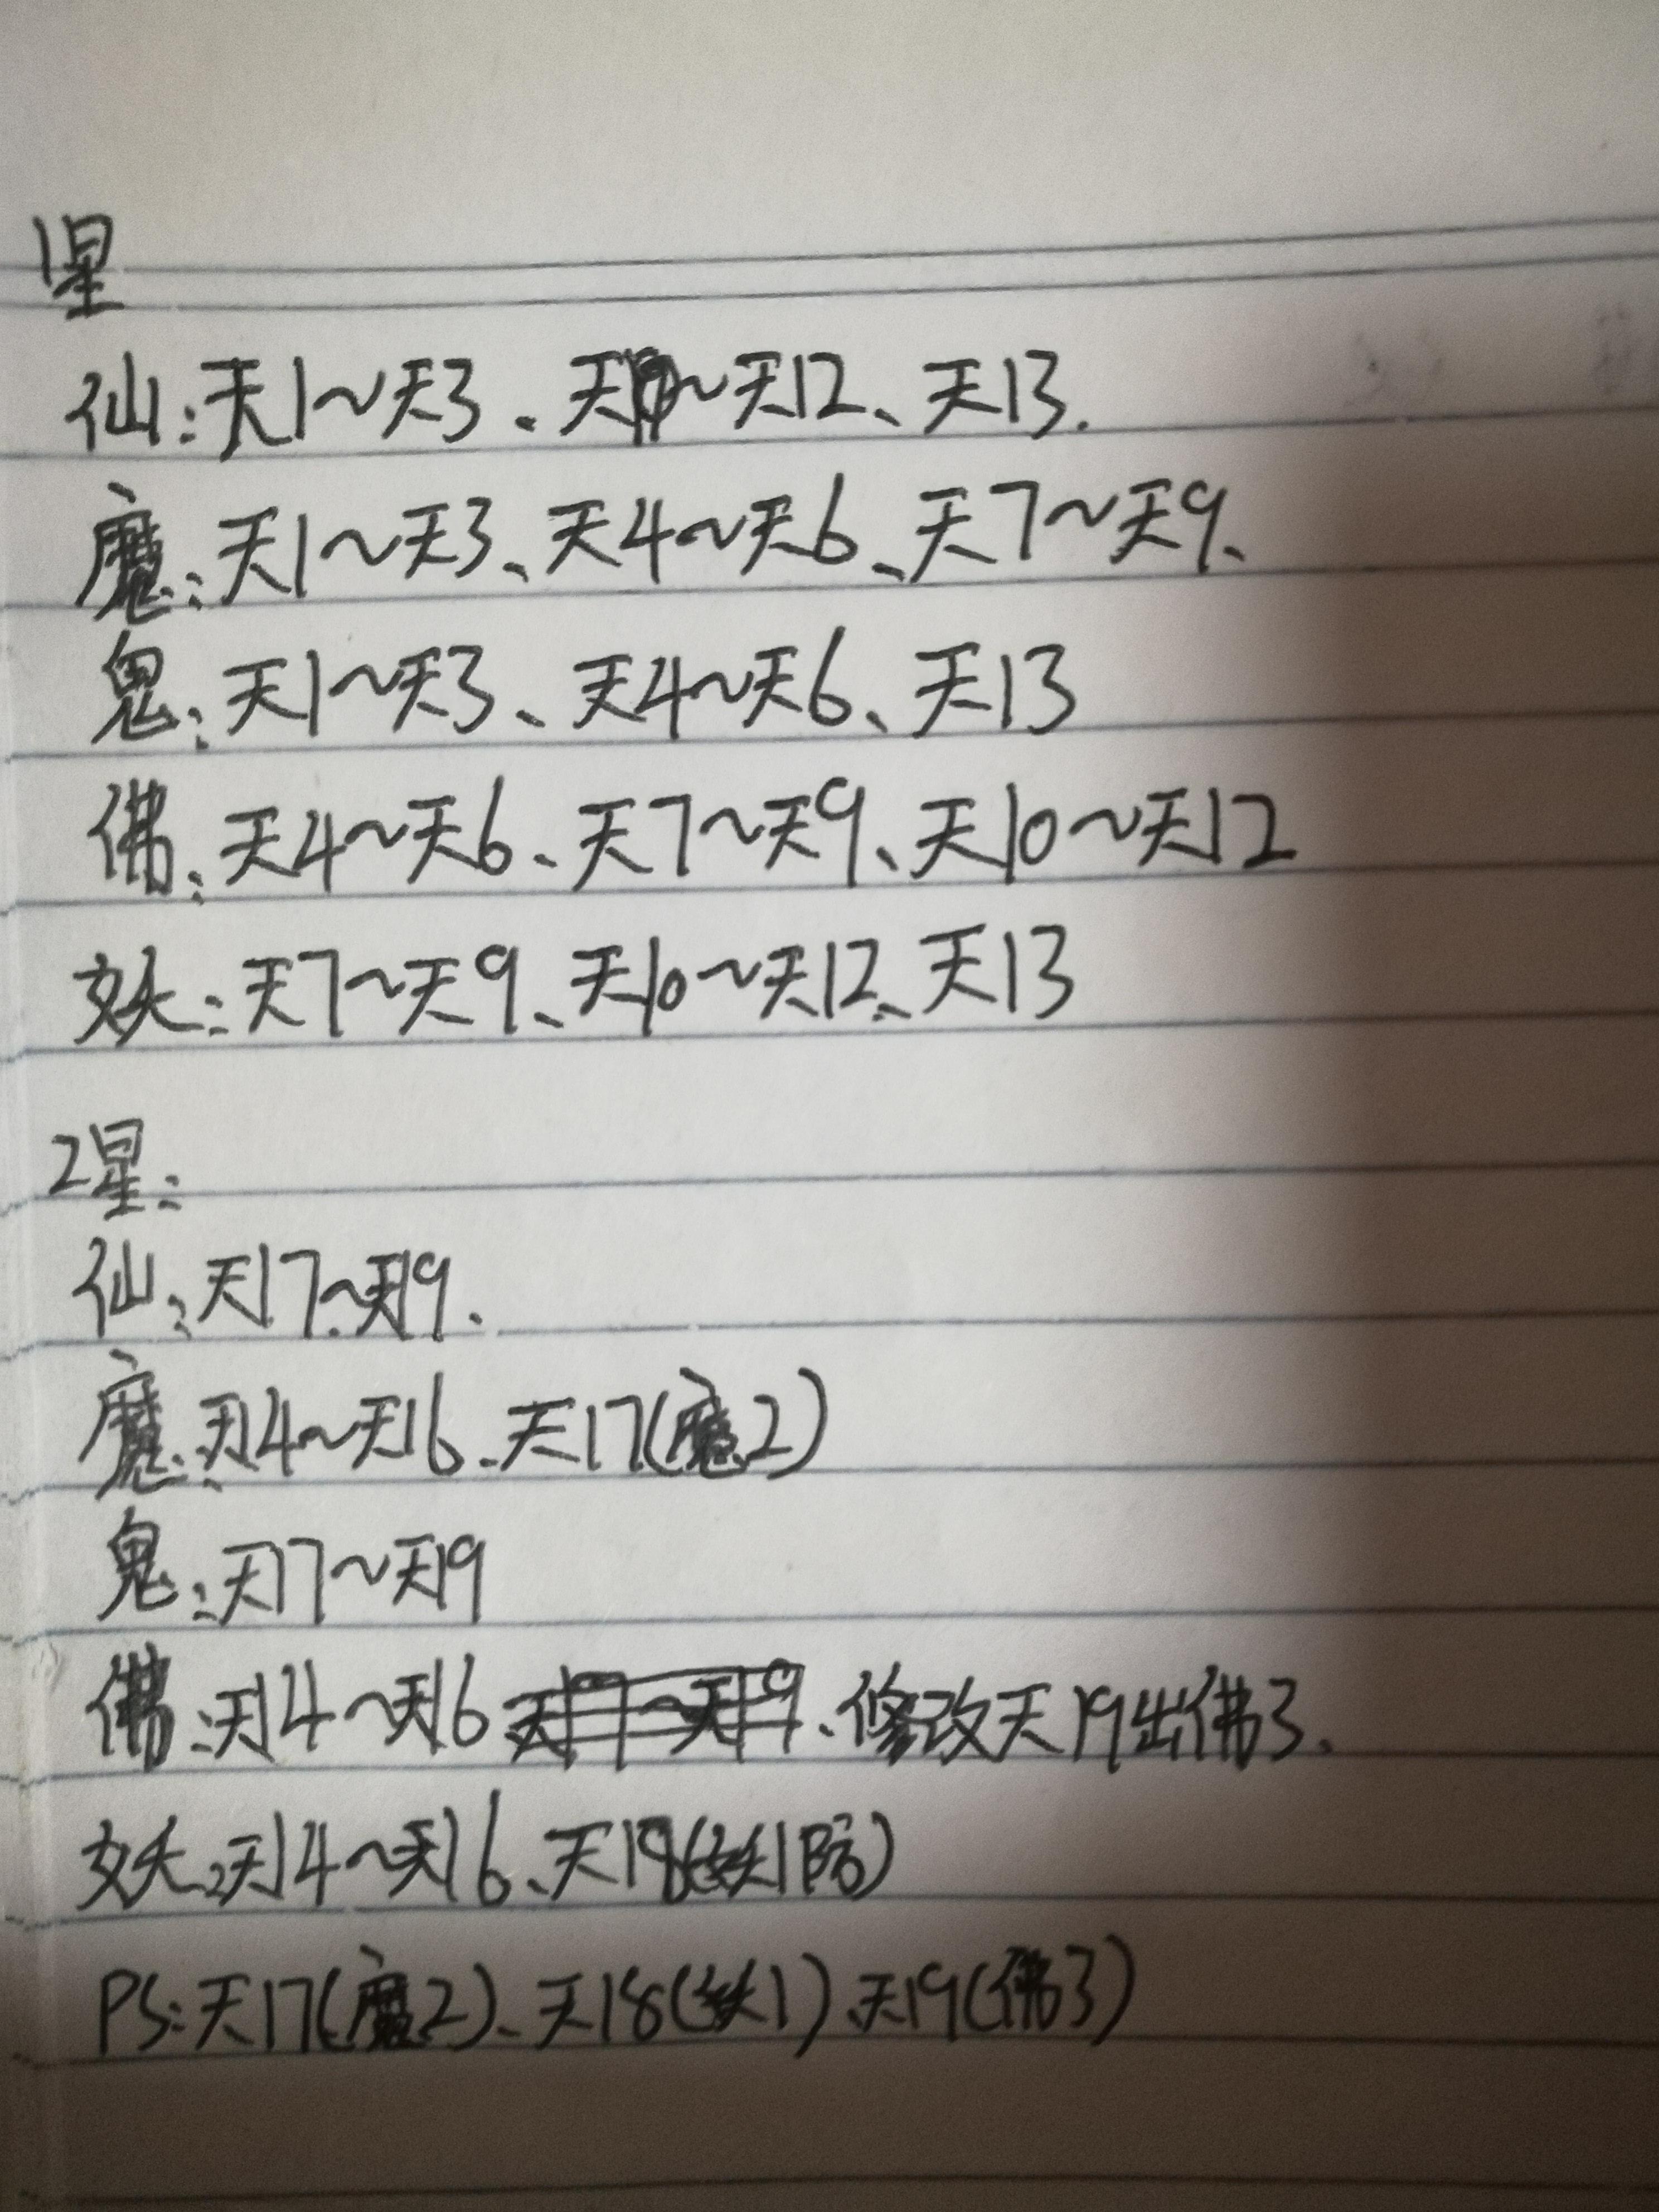 1星
仙:天1~天3、天10~天12、天13.
魔:天1~天3、天4~天6、天7~天9、
鬼:天1~天3、天4~天6、天13
佛:天4~天6、天7~天9、天10~天12
妖:天7~天9、天10~天12、天13
2星:
仙:天17~天19.
魔:天14~天16、天17(魔2)
鬼:天17~天19
佛:天14~天16 天17~天19、修改天19出佛3、
妖:天14~天16、天18(妖1防)
PS:天17(魔2)、天18(妖1)、天19(佛3)